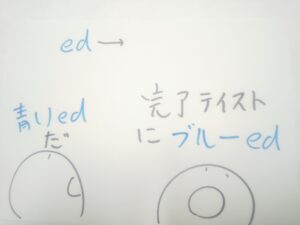 ed→
青いed
だ
完了テイスト
にブルーed